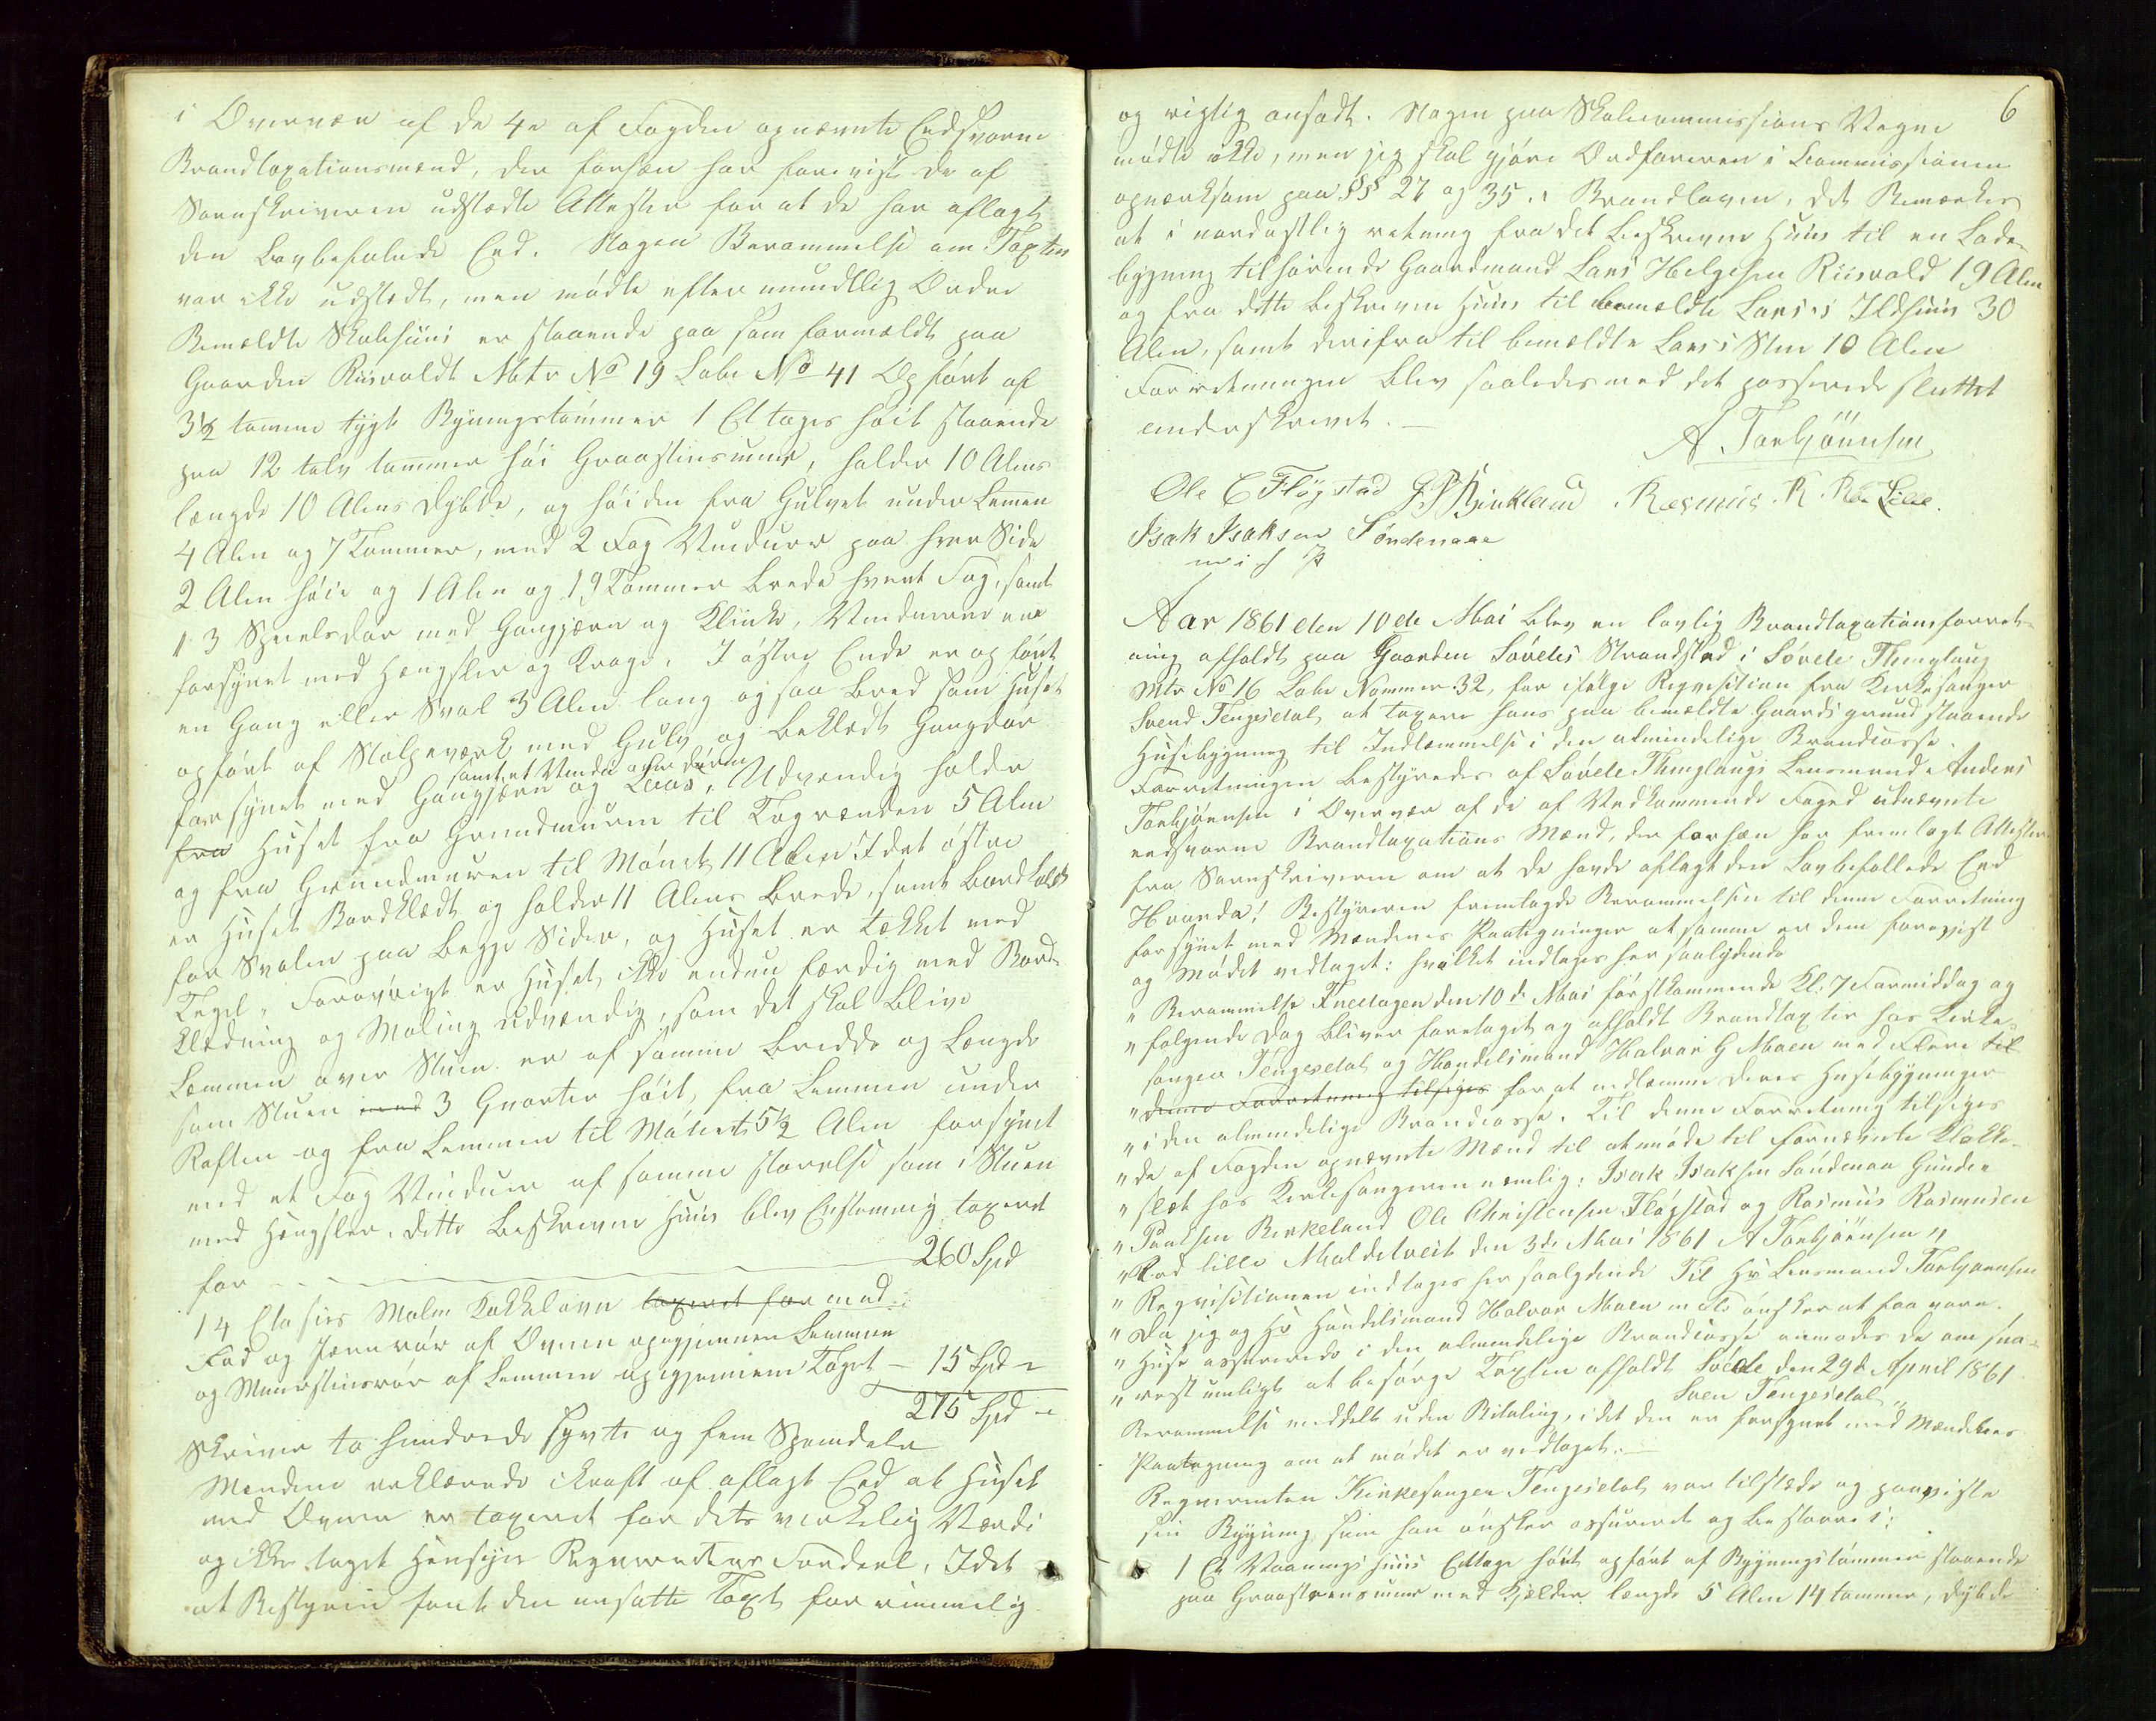 i Overvær af de 4e af Fogden opnævnte Eedsvorne
Brandtaxationsmænd, der forsæn har forevist de af
Sorenskriveren udstædte Attester for at de har aflagt
den Lovbefalede Eed. Nogen Berammelse om Taxten
var ikke udstædt, men mødte efter mundtlig Ordre
Bemældte Skolehuus er staaende paa som formældt paa
Gaarden Riisvoldt Matr No 19 Løbe No 41 Opført af
3½ tomme tygt Bygningstømmer 1 Etages høit staaende
paa 12 tolv tommer høi Graasteensmuur, holder 10 Alens
længde 10 Alens Dybde, og høiden fra Gulvet under Lemen
4 Alen og 7 Tommer, med 2 Fag Vinduer paa hver Side
2 Alen høie og 1 Alen og 19 Tommer brede hvert Fag, samt
1 3 Speilsdør med Gangjern og Klinke, Vinduerne ere
forsynet med Hængsler og Kroge, I østre Ende er opført
en Gang eller Sval 3 Alen lang og saa bred som Huset
opført af Stolpeværk med Gulv og beklædt Gangdør
samt et Vindu over døren
forsynet med Gangjern og Laas, Udvendig holder
fra Huset fra Grundmuren til Tagrænden 5 Alen
og fra Grundmuren til Mønet 11 Alen I det østre
er Huset Bordklædt og holder 11 Alens Brede, samt bordklædt
for Svalen paa begge Sider, og Huset er tækket med
Tegel, Forøvrigt er Huset ikke endnu færdig med Bord-
klædning og Maling udvændig, som det skal blive
Lemmen over Stuen er af samme bredde og Længde
som Stuen med 3 Qvarter høit, fra Lemmen under
Raften og fra Lemmen til Mønet 5½ Alen forsynet
med et Fag Vinduer af samme størrelse som i Stuen
med Hængsler. Dette beskrevne Huus blev Enstemmig taxeret
for 260 Spd
14 Etasies Malm Kakkelovn taxeret for med
Fod og Jernrør af Ovnen opigjennem Lemmen
og Muurstensrør af Lemmen opigjennem Taget – 15 Spd "
275 Spd "
Skriver to hundrede syvti og fem Speciedaler
Mændene erklærede i kraft af aflagt Eed at Huset
med Ovnen er taxeret for dets virkelig Værdi
og ikke taget Hensyn Reqvirentens Fordeel, Idet
at Bestyren fant den ansatte Taxt for rimmelig
6
og rigtig ansadt. Nogen paa Skolecommissions Vegne
mødte ikke, men jeg skal gjøre Ordføreren i Commissionen
opmærksom paa §§ 27 og 35. i Brandloven, det Bemærkes
at i nordøstlig retning fra det beskrevne Huus til en Lade-
bygning tilhørende Gaardmand Lars Helgesen Riisvold 19 Alen
og fra dette beskrevne Huus til bemældte Lars's Ildhuus 30
Alen, samt derifra til bemældte Lars's Stue 10 Alen
Forretningen blev saaledes med det passerede sluttet
underskrevet. —
A. Torbjørnsen
Ole C Fløgstad J. P Birkland Rasmus. R. Roe Lille.
Isak Isaksen Søndenaae
m i s P
Aar 1861 den 10de Mai blev en lovlig Brandtaxationsforret-
ning afholdt paa Gaarden Søvdes Strandstad i Søvde Thinglaug
Mtr No 16 Løbe Nommer 32, for ifølge Reqvisition fra Kirkesanger
Svend Tengesdal at taxere hans paa bemældte Gaards grund staaende
Husebygning til Indlemmelse i den almindelige Brandcasse.
Forretningen bestyredes af Søvde Thinglaugs Lensmand Anders
Torbjørnsen i Overvær af de af Vedkommende Foged udnævnte
eedsvorne Brandtaxations Mænd, der forhæn har fremlagt Attester
fra Sorenskriveren om at de havde aflagt den Lovbefallede Eed
Hvorda! Bestyreren fremlagde Berammelsen til denne Forretning
forsynet med Mændenes Paategninger at samme er dem forevist
og Mødet vedtaget: hvilket indtages her saalydende
" Berammelse Fredagen den 10de Mai førstkommende Kl: 7 Formiddag og
" følgende Dag bliver foretaget og afholdt Brandtaxter hos Kirke-
sanger Tengesdal og Handelsmand Halvor G Moen med Flere til
" denne Forretning tilsiges for at indlemme deres Husebygninger
" i den almindelige Brandcasse. Til denne Forretning tilsiges
" de af Fogden opnævnte Mænd til at møde til fornævnte Klokke-
" slet hos Kirkesangeren nemlig: Isak Isaksen Søndenaa Gunder
" Paulsen Birkeland Ole Christensen Fløgstad og Rasmus Rasmusen
" Roe lille Maldetveit den 3de Mai 1861 A Torbjørnsen "
" Reqvisitionen indtages her saalydende Til Hr Lensmand Torbjørnsen
" Da jeg og Hr Handelsmand Halvor Moen m Fl. ønsker at faa vore
" Huse assurerede i den almindelige Brandcasse anmodes De om sna-
" rest mulight at besørge Taxten afholdt Søvde den 29de April 1861
Sven Tengesdal "
Berammelse meddelt uden Bitaling, idet den er forsynet med Mændenes
Paategning om at mødet er vedtaget. —
Reqvirenten Kirkesanger Tengesdal var tilstæde og paaviste
sin Bygning som han ønsker assureret og bestaar i:
1 Et Vaaningshuus Etage høit opført af Bygningstømmer staaende
paa Graasteensmuur med Kjælder længde 5 Alen 14 tommer, dybde